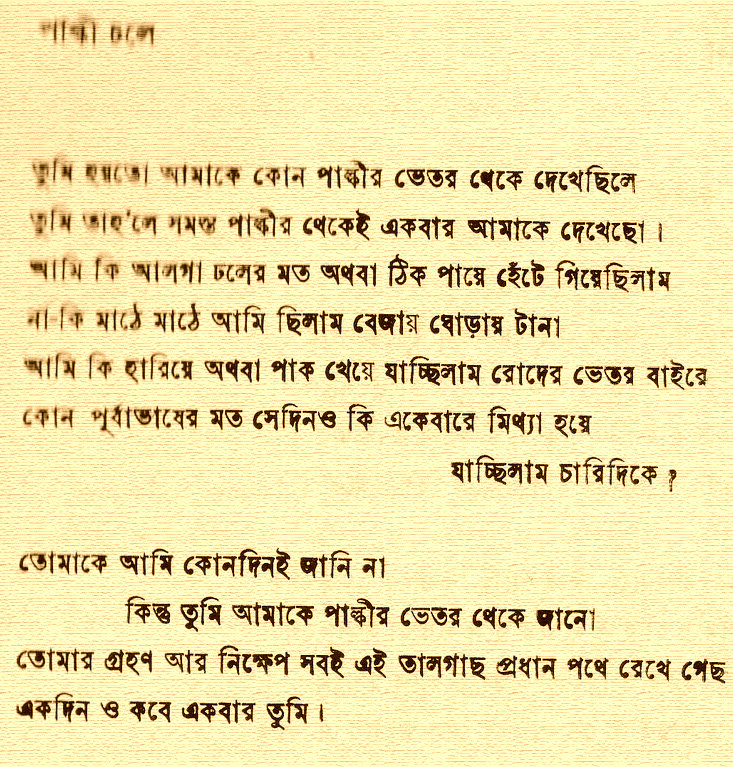 পাল্কী চলে
তুমি হয়তো আমাকে কোন পাল্কীর ভেতর থেকে দেখেছিলে
তুমি তাহ'লে সমস্ত পাল্কীর থেকেই একবার আমাকে দেখেছো ।
আমি কি আলগা ঢলের মত অথবা ঠিক পায়ে হেঁটে গিয়েছিলাম
না-কি মাঠে মাঠে আমি ছিলাম বেজায় ঘোড়ায় টানা
আমি কি হারিয়ে অথবা পাক খেয়ে যাচ্ছিলাম রোদের ভেতর বাইরে
কোন পূর্বাভাষের মত সেদিনও কি একেবারে মিথ্যা হয়ে
যাচ্ছিলাম চারিদিকে ?
তোমাকে আমি কোনদিনই জানি না
কিন্তু তুমি আমাকে পাল্কীর ভেতর থেকে জানো
তোমার গ্রহণ আর নিক্ষেপ সবই এই তালগাছ প্রধান পথে রেখে গেছ
একদিন ও কবে একবার তুমি ।